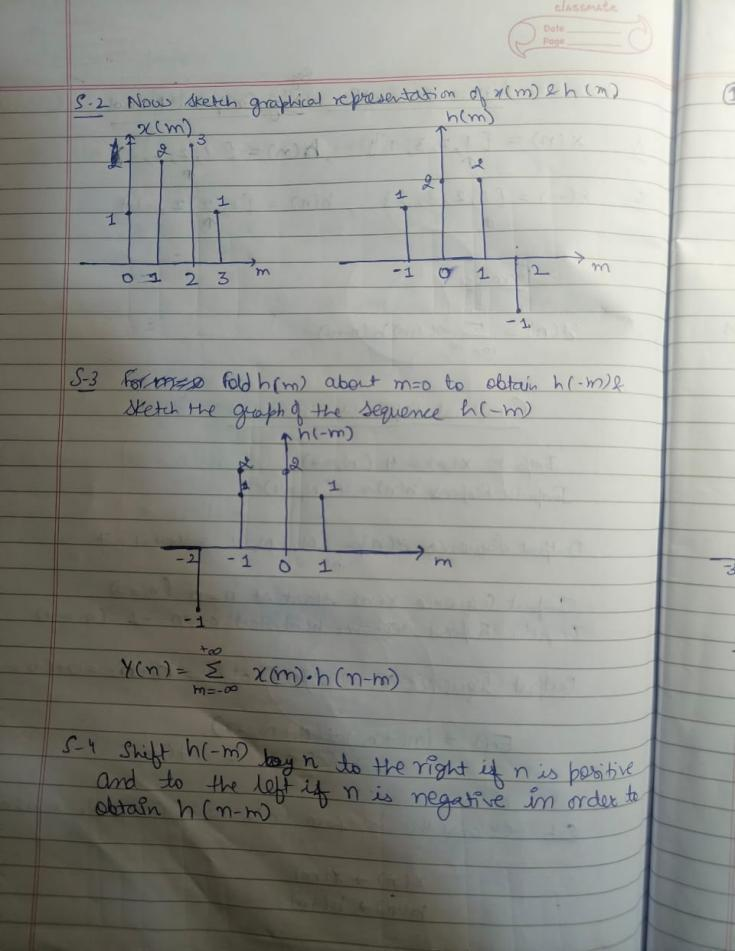 classmate
Date
Page
S-2 Now sketch graphical representation of x(m) & h(m)
x(m)
2
3
1
1
0 1 2 3 m
h(m)
1
2
2
-1 0 1 2 m
-1
S-3 Fold h(m) about m=0 to obtain h(-m) &
sketch the graph of the sequence h(-m)
h(-m)
2
2
1
-2 -1 0 1 m
-1
Y(n) = +∞ Σ m=-∞ x(m)•h(n-m)
S-4 Shift h(-m) by n to the right if n is positive
and to the left if n is negative in order to
obtain h(n-m)